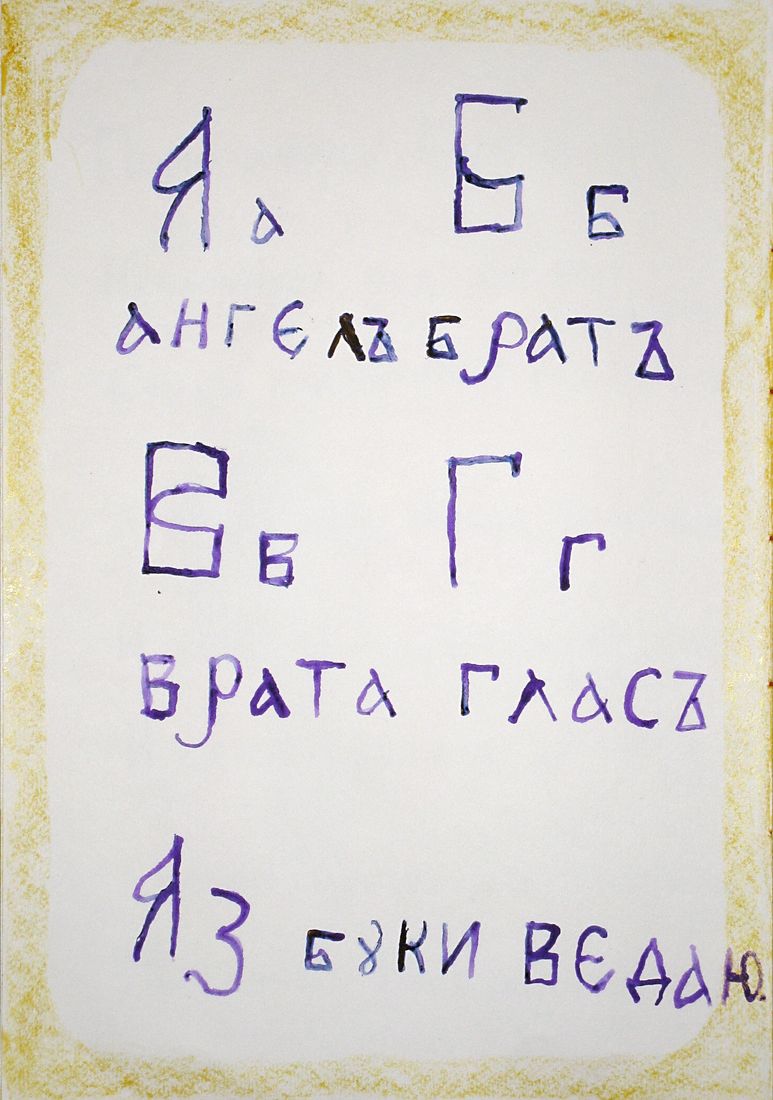 А а Б б
ангєлъ братъ
В в Г г
врата гласъ
Аз буки вєдаю.